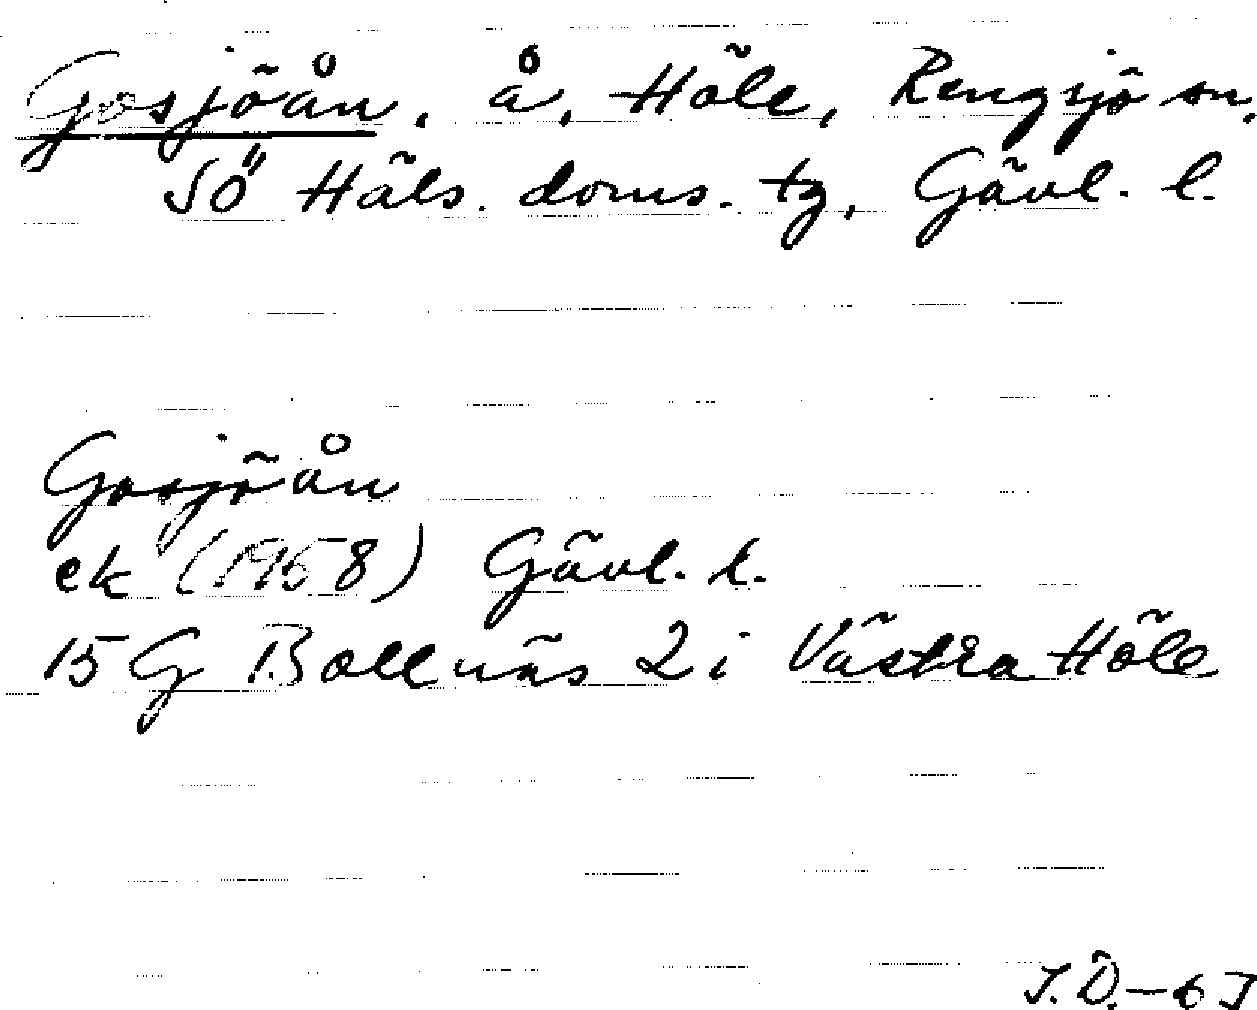 Gosjöån, å, Höle, Rengsjö sn,
SÖ Häls. doms. tg, Gävl. l.
Gosjöån
ek (1958) Gävl. l.
15 G Bollnäs 2 i Västra Höle